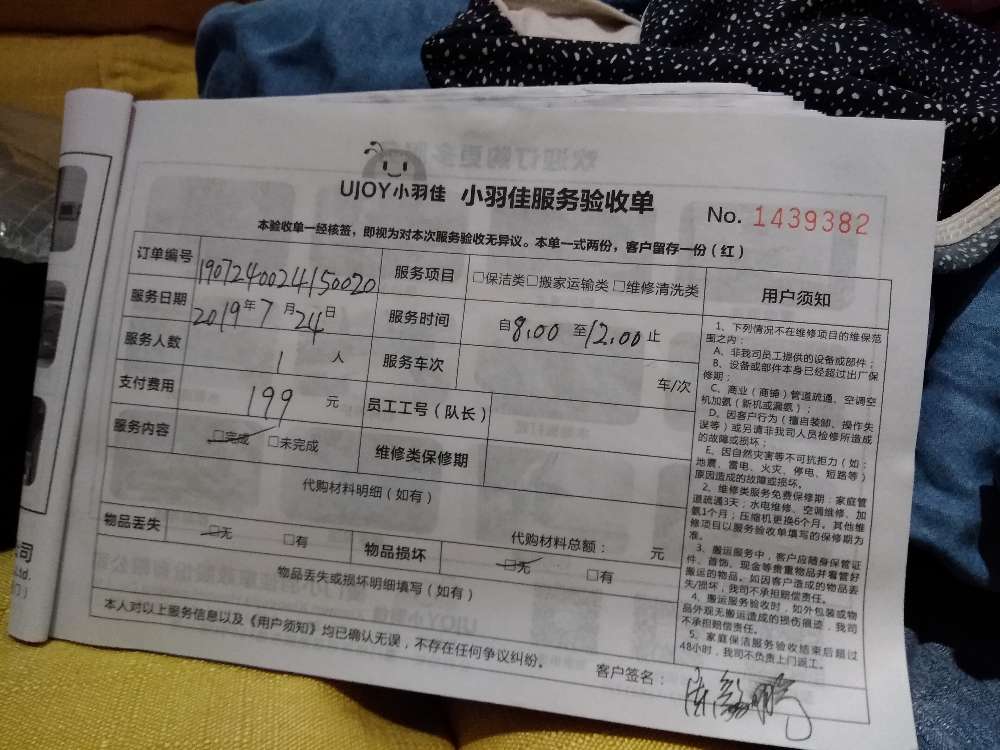 UJOY小羽佳 小羽佳服务验收单
No. 1439382
本验收单一经核签，即视为对本次服务验收无异议。本单一式两份，客户留存一份（红）
订单编号 1907240024150020 服务项目 □保洁类□搬家运输类 □维修清洗类
服务日期 2019年7月24日 服务时间 自8:00至12:00止
服务人数 1 人 服务车次 车/次
支付费用 199 元 员工工号（队长）
服务内容 □完成 □未完成 维修类保修期
代购材料明细（如有）
代购材料总额： 元
物品丢失 □无 □有 物品损坏 □无 □有
物品丢失或损坏明细填写（如有）
本人对以上服务信息以及《用户须知》均已确认无误，不存在任何争议纠纷。
客户签名：
用户须知
1、下列情况不在维修项目的维保范
围之内：
A、非我司员工提供的设备或部件；
B、设备或部件本身已经超过出厂保
修期；
C、商业（商铺）管道疏通、空调空
机加氨（新机或漏氨）；
D、因客户行为（擅自装卸、操作失
误等）或另请非我司人员检修所造成
的故障或损坏；
E、因自然灾害等不可抗拒力（如：
地震、雷电、火灾、停电、短路等）
原因造成的故障或损坏。
2、维修类服务免费保修期：家庭管
道疏通3天；水电维修、空调维修、加
氨1个月；压缩机更换6个月。其他维
修项目以服务验收单填写的保修期为
准。
3、搬运服务中，客户应随身保管证
件、首饰、现金等贵重物品并看管好
搬运的物品。如因客户造成的物品丢
失/损坏，我司不承担赔偿责任。
4、搬运服务验收时，如外包装或物
品外观无搬运造成的损伤痕迹，我司
不承担赔偿责任。
5、家庭保洁服务验收结束后超过
48小时，我司不负责上门返工。
司
Ltd.
门）